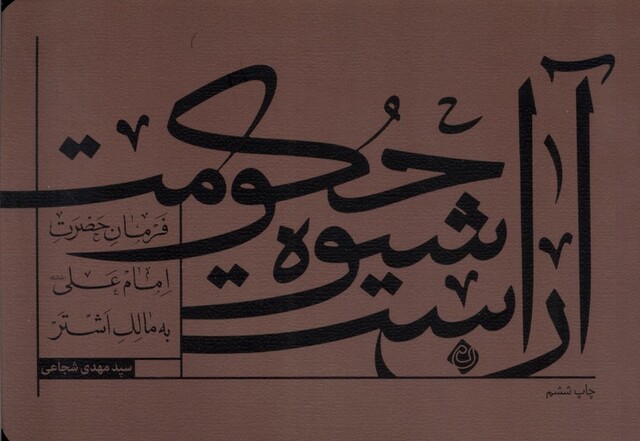 آراست
شیوه
حکومت
فرمان حضرت
امام علی
به مالک اشتر
سید مهدی شجاعی
چاپ ششم